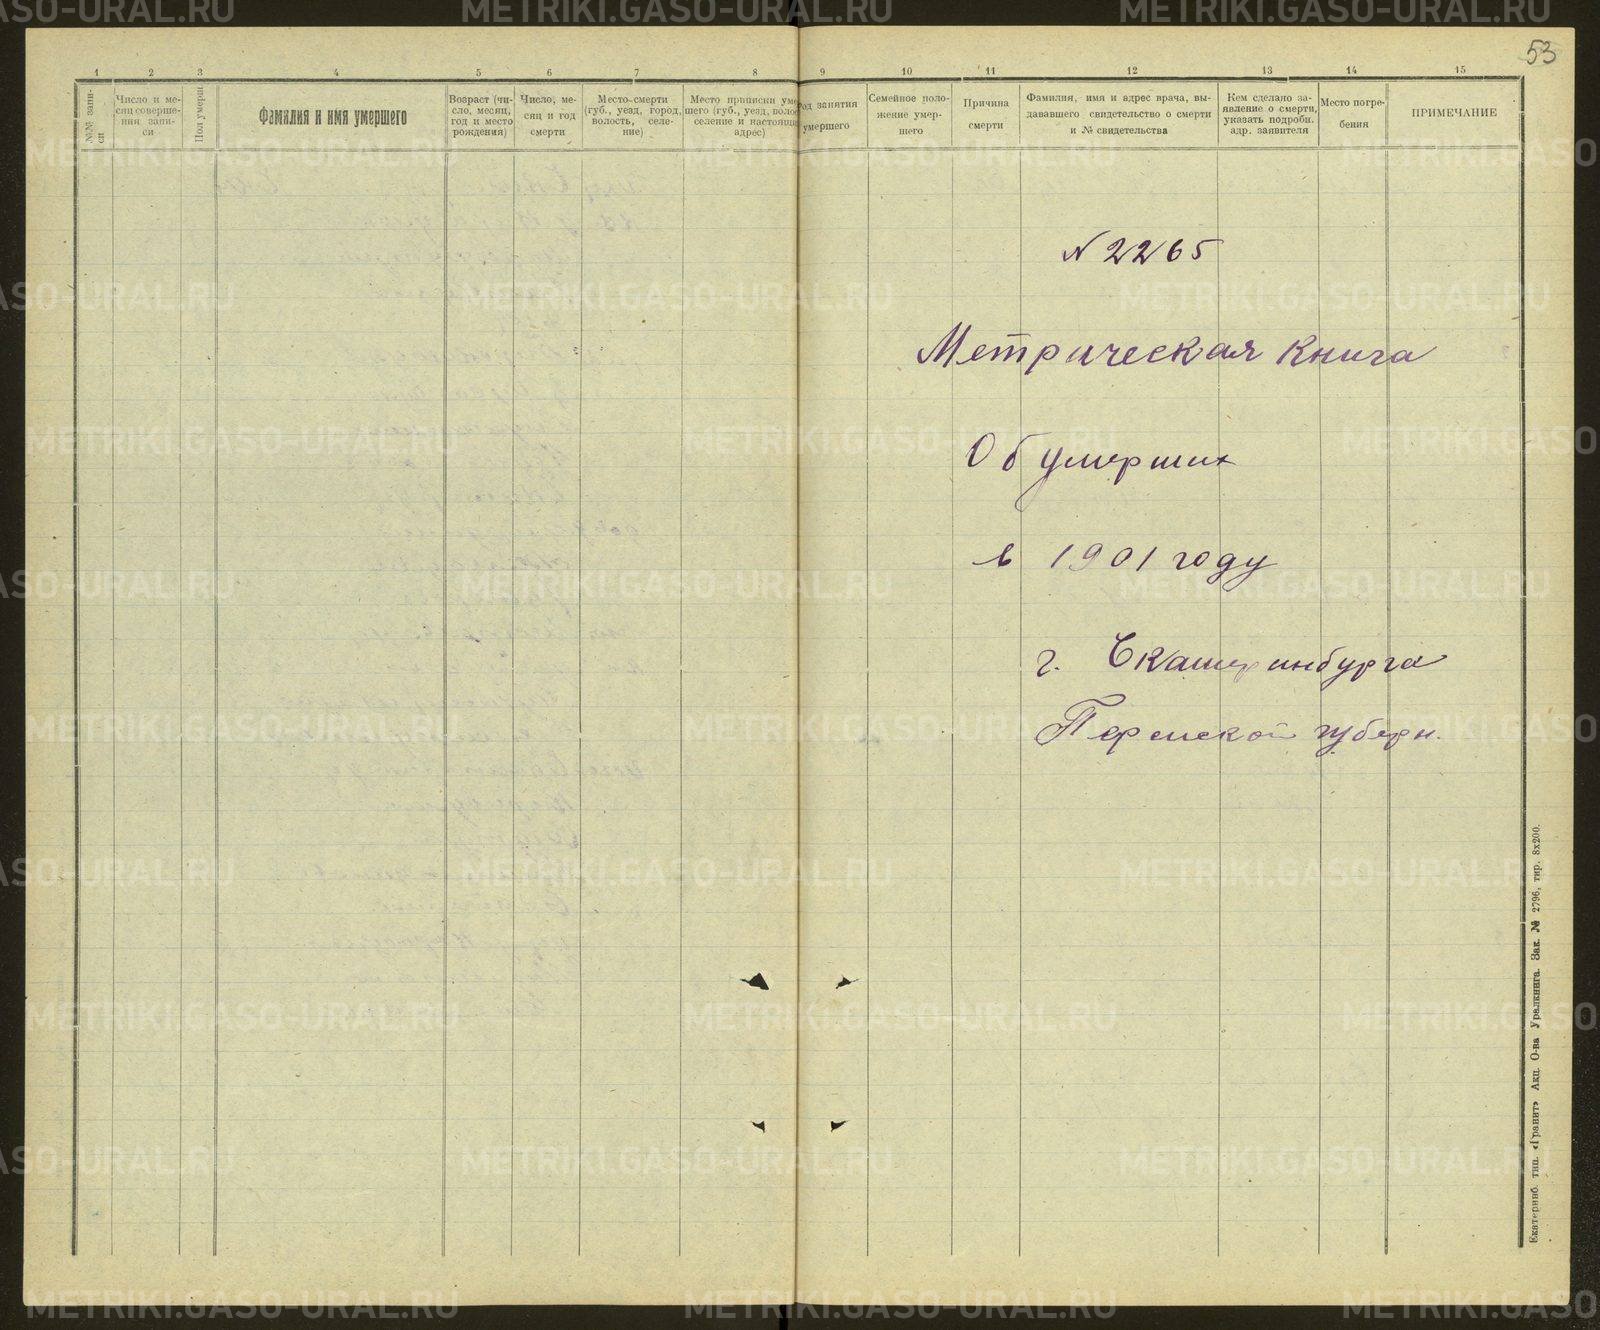 53
1 2 3 4 5 6 7 8 9 10 11 12 13 14 15
№№ запи-
си
Число и ме-
сяц соверше-
ния запи-
си
Пол умерш
Фамилия и имя умершего
Возраст (чи-
сло, месяц,
год и место
рождения)
Число, ме-
сяц и год
смерти
Место смерти
(губ., уезд, город,
волость, селе-
ние)
Место приписки уме
шего (губ., уезд, волос
селение и настоящи
адрес)
од занятия
умершего
Семейное поло-
жение умер-
шего
Причина
смерти
Фамилия, имя и адрес врача, вы-
дававшего свидетельство о смерти
и № свидетельства
Кем сделано за-
явление о смерти,
указать подробн.
адр. заявителя
Место погре-
бения
ПРИМЕЧАНИЕ
N 2265
Метрическая книга
Об умерших
в 1901 году
г. Екатеринбурга
Пермской губерн.
Екатеринб. тип. «Гранит» Акц. О-ва Уралкнига. Зак. № 2796, тир. 8х200.
METRIKI.GASO-URAL.RU